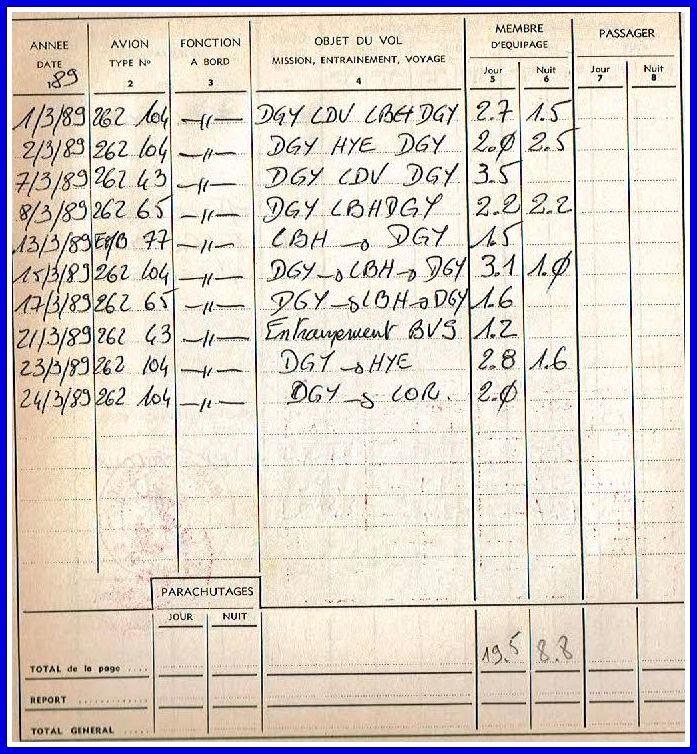 ANNEE AVION FONCTION OBJET DU VOL MEMBRE D'EQUIPAGE PASSAGER
DATE TYPE N° A BORD MISSION, ENTRAINEMENT, VOYAGE Jour Nuit Jour Nuit
89 2 3 4 5 6 7 8
1/3/89 262 104 —〃— DGY LDV LBH DGY 2.7 1.5
2/3/89 262 104 —〃— DGY HYE DGY 2.0 2.5
7/3/89 262 43 —〃— DGY LDV DGY 3.5
8/3/89 262 65 —〃— DGY LBH DGY 2.2 2.2
13/3/89 77 —〃— LBH → DGY 1.5
15/3/89 262 104 —〃— DGY → LBH → DGY 3.1 1.0
17/3/89 262 65 —〃— DGY → LBH → DGY 1.6
21/3/89 262 43 —〃— Entrainement BVS 1.2
23/3/89 262 104 —〃— DGY → HYE 2.8 1.6
24/3/89 262 104 —〃— DGY → LOR. 2.0
PARACHUTAGES
JOUR NUIT
TOTAL de la page .... 19.5 8.8
REPORT ............
TOTAL GENERAL ....